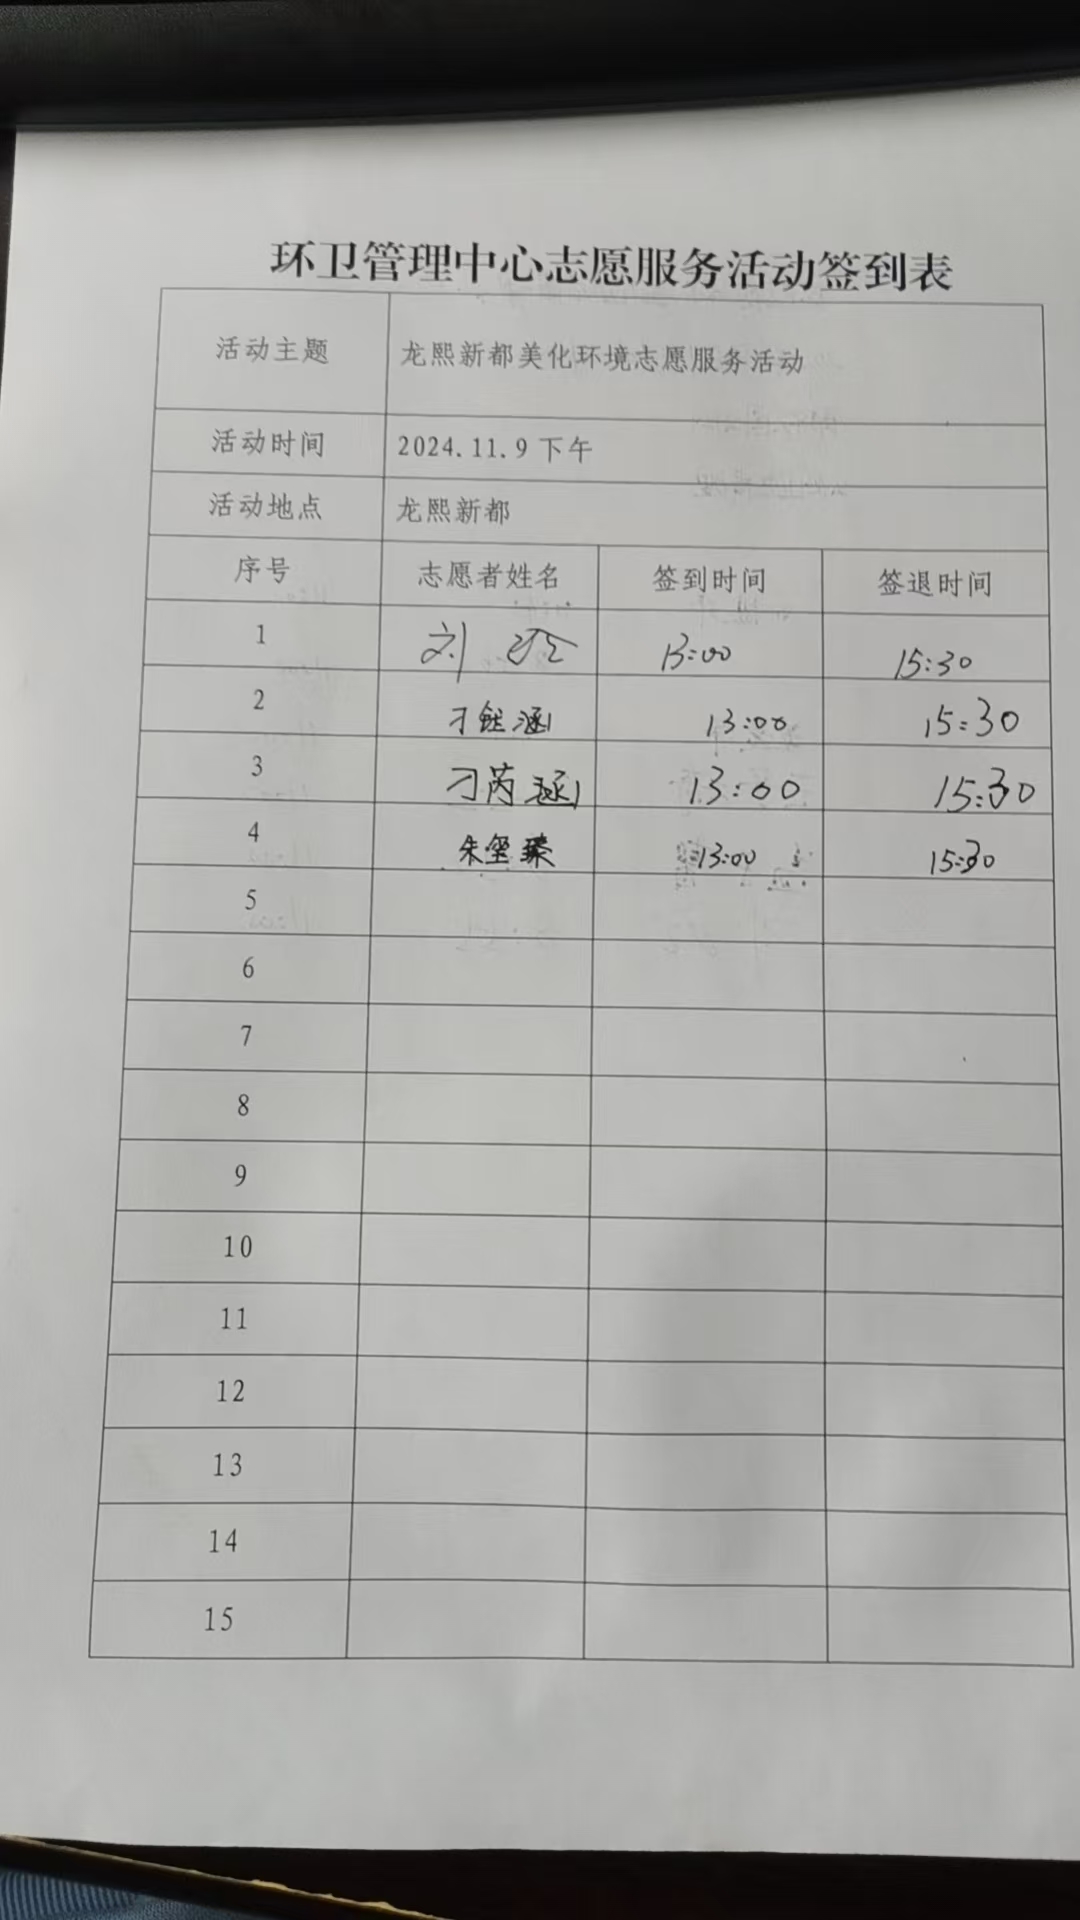 环卫管理中心志愿服务活动签到表
活动主题 龙熙新都美化环境志愿服务活动
活动时间 2024.11.9下午
活动地点 龙熙新都
序号 志愿者姓名 签到时间 签退时间
1 刘 13:00 15:30
2 刁钰涵 13:00 15:30
3 刁芮涵 13:00 15:30
4 朱玺臻 13:00 15:30
5
6
7
8
9
10
11
12
13
14
15